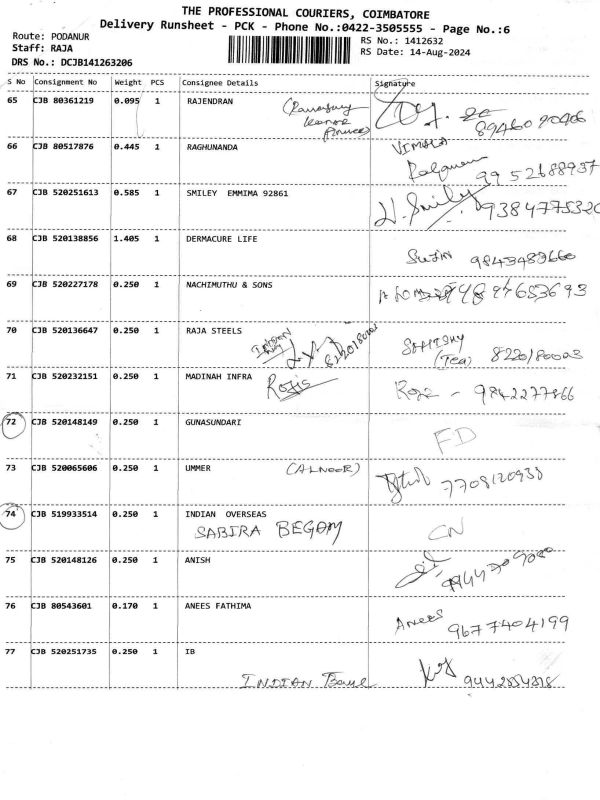 THE PROFESSIONAL COURIERS, COIMBATORE
Delivery Runsheet - PCK - Phone No.:0422-3505555 - Page No.:6
Route: PODANUR
Staff: RAJA
DRS No.: DCJB141263206
RS No.: 1412632
RS Date: 14-Aug-2024
S No Consignment No Weight PCS Consignee Details Signature
65 CJB 80361219 0.095 1 RAJENDRAN
66 CJB 80517876 0.445 1 RAGHUNANDA VIMALA
9952688937
67 CJB 520251613 0.585 1 SMILEY EMMIMA 92861 Smily 9384775320
68 CJB 520138856 1.405 1 DERMACURE LIFE
69 CJB 520227178 0.250 1 NACHIMUTHU & SONS
70 CJB 520136647 0.250 1 RAJA STEELS
(Tea) 8220180003
71 CJB 520232151 0.250 1 MADINAH INFRA Roja - 9842277866
72 CJB 520148149 0.250 1 GUNASUNDARI FD
73 CJB 520065606 0.250 1 UMMER (ALNOOR) 7708120938
74 CJB 519933514 0.250 1 INDIAN OVERSEAS CN
SABIRA BEGAM
75 CJB 520148126 0.250 1 ANISH
76 CJB 80543601 0.170 1 ANEES FATHIMA Anees 9677404199
77 CJB 520251735 0.250 1 IB
INDIAN Bank